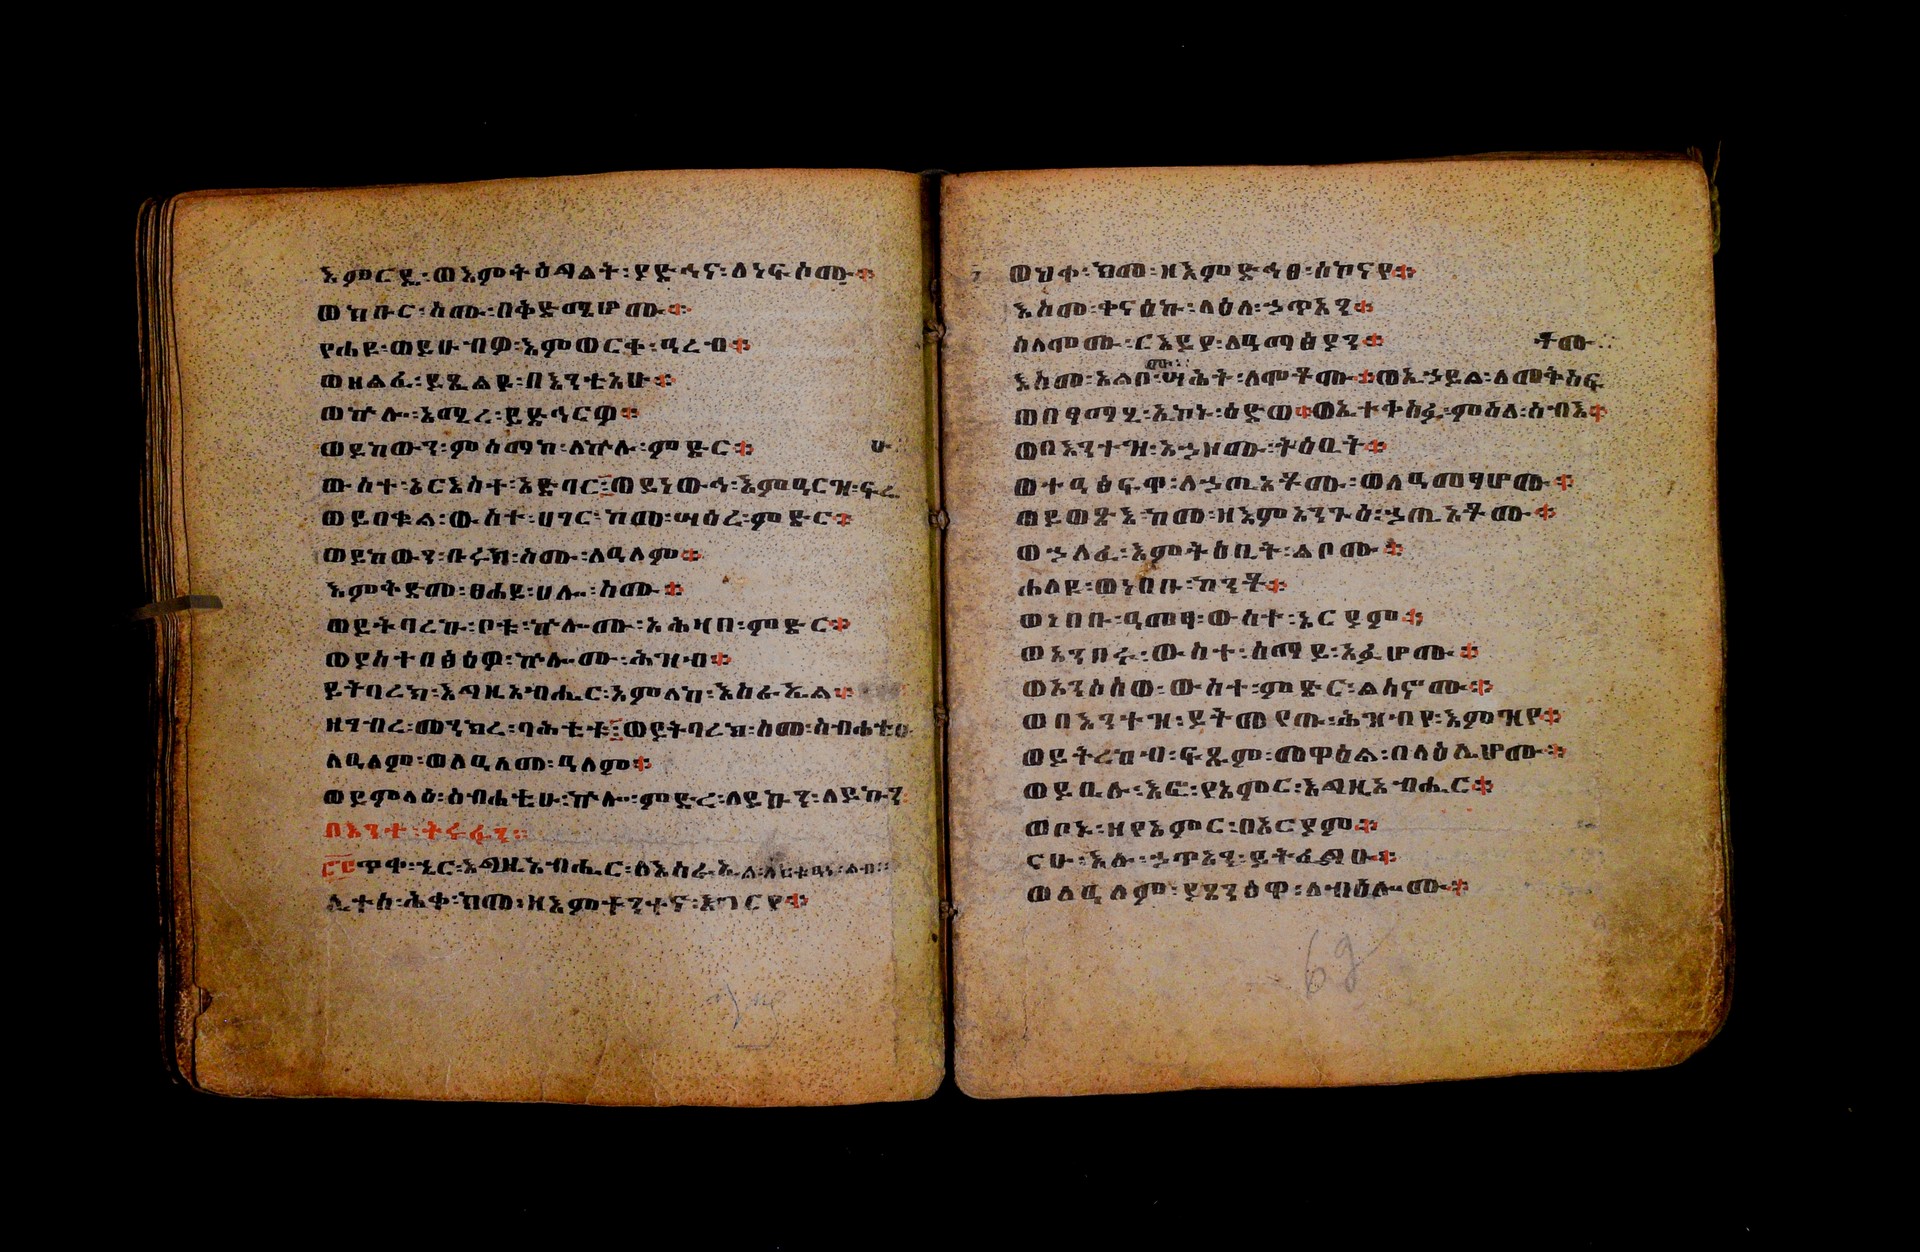 እምርዴ፡ወእምትዕግልት፡ያድኅና፡ለነፍሶሙ።
ወክቡር፡ስሙ፡በቅድሜሆሙ።
የሐዩ፡ወይሁብዎ፡እምወርቀ፡ዓረብ።
ወዘልፈ፡ይጼልዩ፡በእንቲአሁ።
ወኵሎ፡አሚረ፡ይድኅርዎ።
ወይከውን፡ምስማከ፡ለኵሉ፡ምድር።
ውስተ፡ርእስተ፡አድባር፤ወይነውኅ፡እምዓርዝ፡ፍሬ
ሁ፡
ወይበቍል፡ውስተ፡ሀገር፡ከመ፡ሣዕረ፡ምድር።
ወይከውን፡ቡሩክ፡ስሙ፡ለዓለም።
እምቅድመ፡ፀሐይ፡ሀሎ፡ስሙ።
ወይትባረኩ፡ቦቱ፡ኵሎሙ፡አሕዛበ፡ምድር።
ወያስተበፅዕዎ፡ኵሎሙ፡ሕዝብ።
ይትባረክ፡እግዚአብሔር፡አምላከ፡እስራኤል።
ዘገብረ፡መንክረ፡ባሕቲቱ፤ወይትባረክ፡ስመ፡ስብሐቲ
ለዓለም፡ወለዓለመ፡ዓለም።
ወይምላዕ፡ስብሐቲሁ፡ኵሎ፡ምድረ፡ለይኩን፡ለይኩን
በእንተ፡ትሩፋን።
ጥቀ፡ኄር፡እግዚአብሔር፡ለእስራኤል፡ለርቱዓነ፡ልብ።
ሊተሰ፡ሕቀ፡ከመ፡ዘእምተንተና፡እገርየ።
ወህቀ፡ከመ፡ዘእምድኅፀ፡ሰኰናየ።
እስመ፡ቀናዕኩ፡ላዕለ፡ኃጥአን።
ሰላሞሙ፡ርእይየ፡ለዓማፅያን።
ቶሙ፡
ሙ፡
እስመ፡አልቦ፡ሣሕት፡ለሞቶሙ።ወኢኃይል፡ለመቅሰፍ
ወበፃማሂ፡ኢኮኑ፡ዕድወ።ወኢተቀስፉ፡ምስለ፡ሰብእ።
ወበእንተዝ፡አኃዘሙ፡ትዕቢት።
ወተዓፅፍዋ፡ለኃጢአቶሙ፡ወለዓመፃሆሙ።
ወይወፅእ፡ከመ፡ዘእምአንጕዕ፡ኃጢአቶሙ።
ወኃለፈ፡እምትዕቢት፡ልቦሙ።
ሐለዩ፡ወነበቡ፡ከንቶ።
ወነበቡ፡ዓመፃ፡ውስተ፡አርያም።
ወአንበሩ፡ውስተ፡ሰማይ፡አፉሆሙ።
ወአንሶሰወ፡ውስተ፡ምድር፡ልሳኖሙ።
ወበእንተዝ፡ይትመየጡ፡ሕዝብየ፡እምዝየ።
ወይትረከብ፡ፍጹም፡መዋዕል፡በላዕሌሆሙ።
ወይቤሉ፡እፎ፡የአምር፡እግዚአብሔር።
ወቦኑ፡ዘየአምር፡በአርያም።
ናሁ፡እሉ፡ኃጥአን፡ይትፌግዑ።
ወለዓለም፡ያጸንዕዋ፡ለብዕሎሙ።